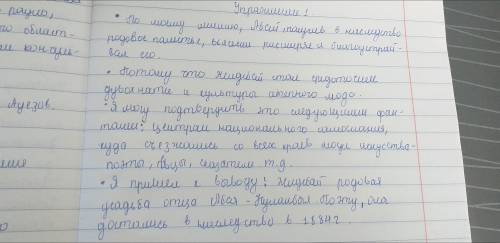 рацио,
го област-
Ауезов.
Упражнение 1
• По моему мнению, Абай получив в наследство
родовое поместье, расширял и благоустраи-
вал его.
• Потому что Жидебай стал средоточием
духовности и культуры степного людо.
• Я могу подтвердить это следующими фак-
тами: центрам национального самосознания,
куда съезжались со всех краёв люди искусства-
поэты, певцы, сказители т.д.
• Я пришел к выводу: Жидебай родовая
усадьба отца Абая - Кунанбая Поэту, она
досталась в наследство в 1884г.